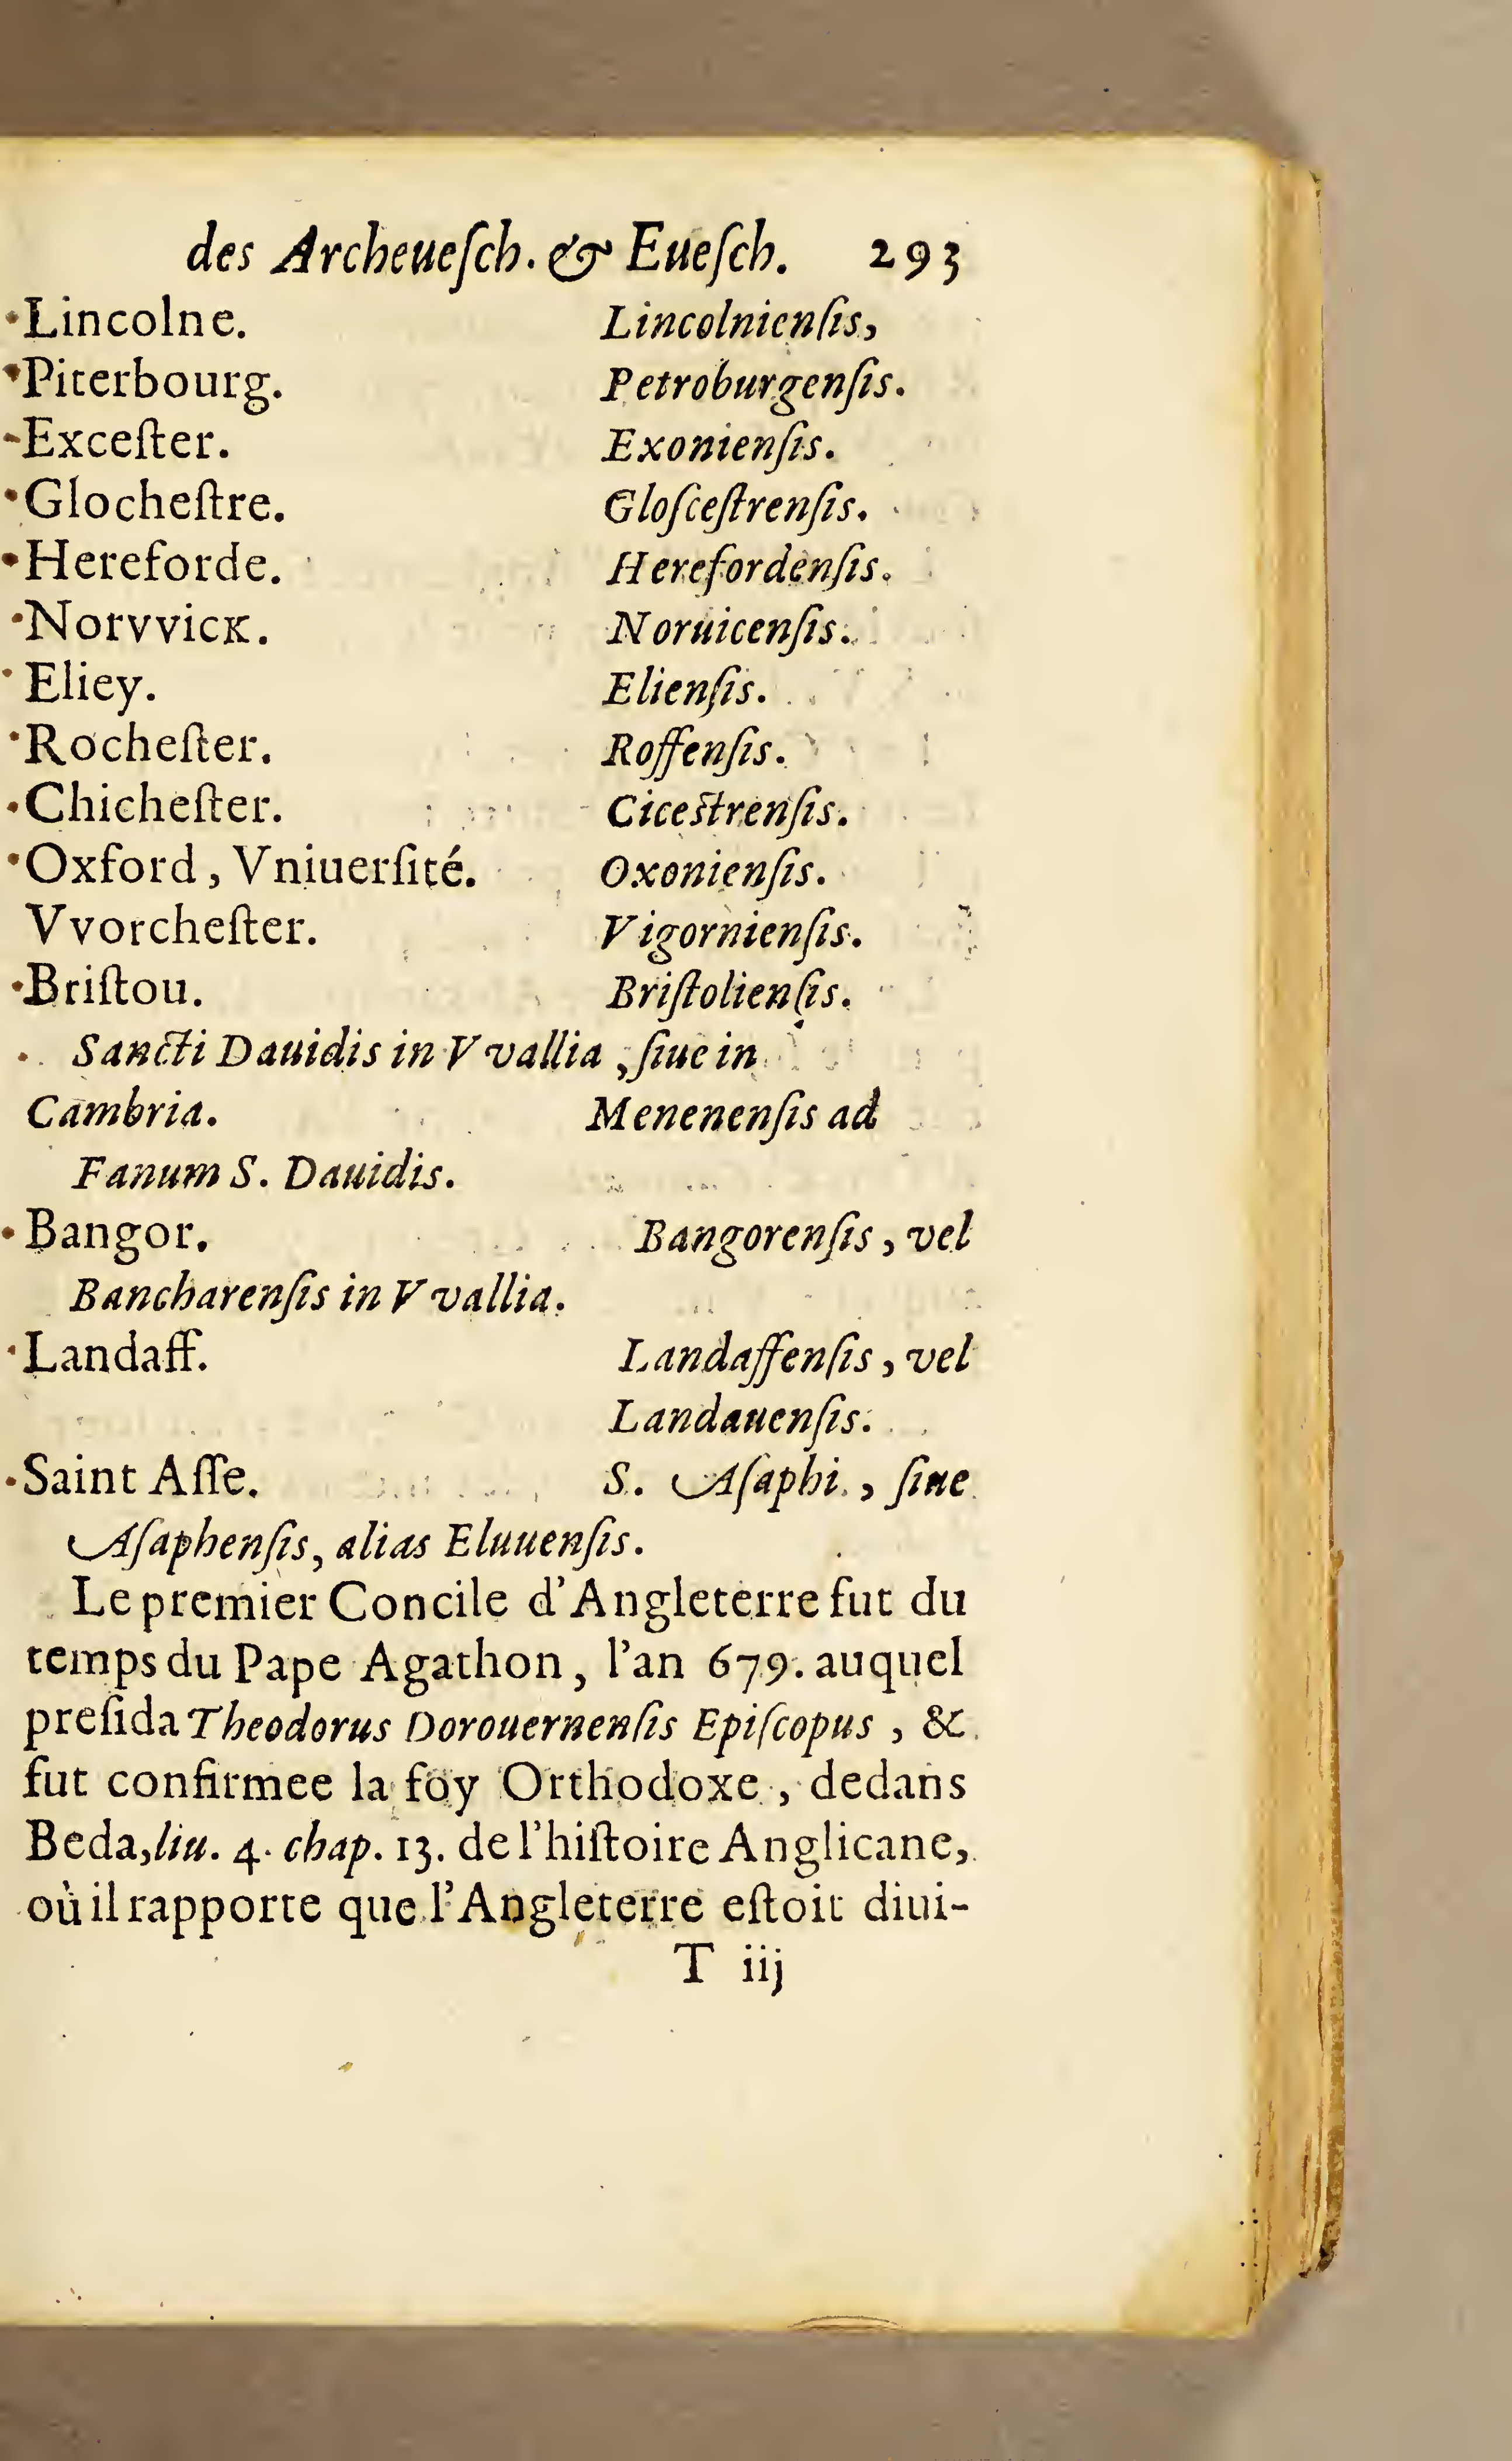 des Archeueſch. & Eueſch. 293
Lincolne. Lincolnienſis,
Piterbourg. Petroburgenſis.
Exceſter. Exonienſis.
Glocheſtre. Gloſceſtrenſis.
Hereforde. Herefordenſis.
Norvvicк. Noruicenſis.
Eliey. Elienſis.
Rocheſter. Roffenſis.
Chicheſter. Ciceſtrenſis.
Oxford, Vniuerſité. Oxonienſis.
Vvorcheſter. Vigornienſis.
Briſtou. Briſtolienſis.
Sancti Dauidis in Vvallia, ſiue in
Cambria. Menenenſis ad
Fanum S. Dauidis.
Bangor. Bangorenſis, vel
Bancharenſis in Vvallia.
Landaff. Landaffenſis, vel
Landauenſis.
Saint Aſſe. S. Aſaphi, ſiue
Aſaphenſis, alias Eluuenſis.
Le premier Concile d'Angleterre fut du
temps du Pape Agathon, l'an 679. auquel
preſida Theodorus Dorouernenſis Epiſcopus, &
fut confirmee la foy Orthodoxe, dedans
Beda, liu. 4. chap. 13. de l'hiſtoire Anglicane,
où il rapporte que l'Angleterre eſtoit diui-
T iij